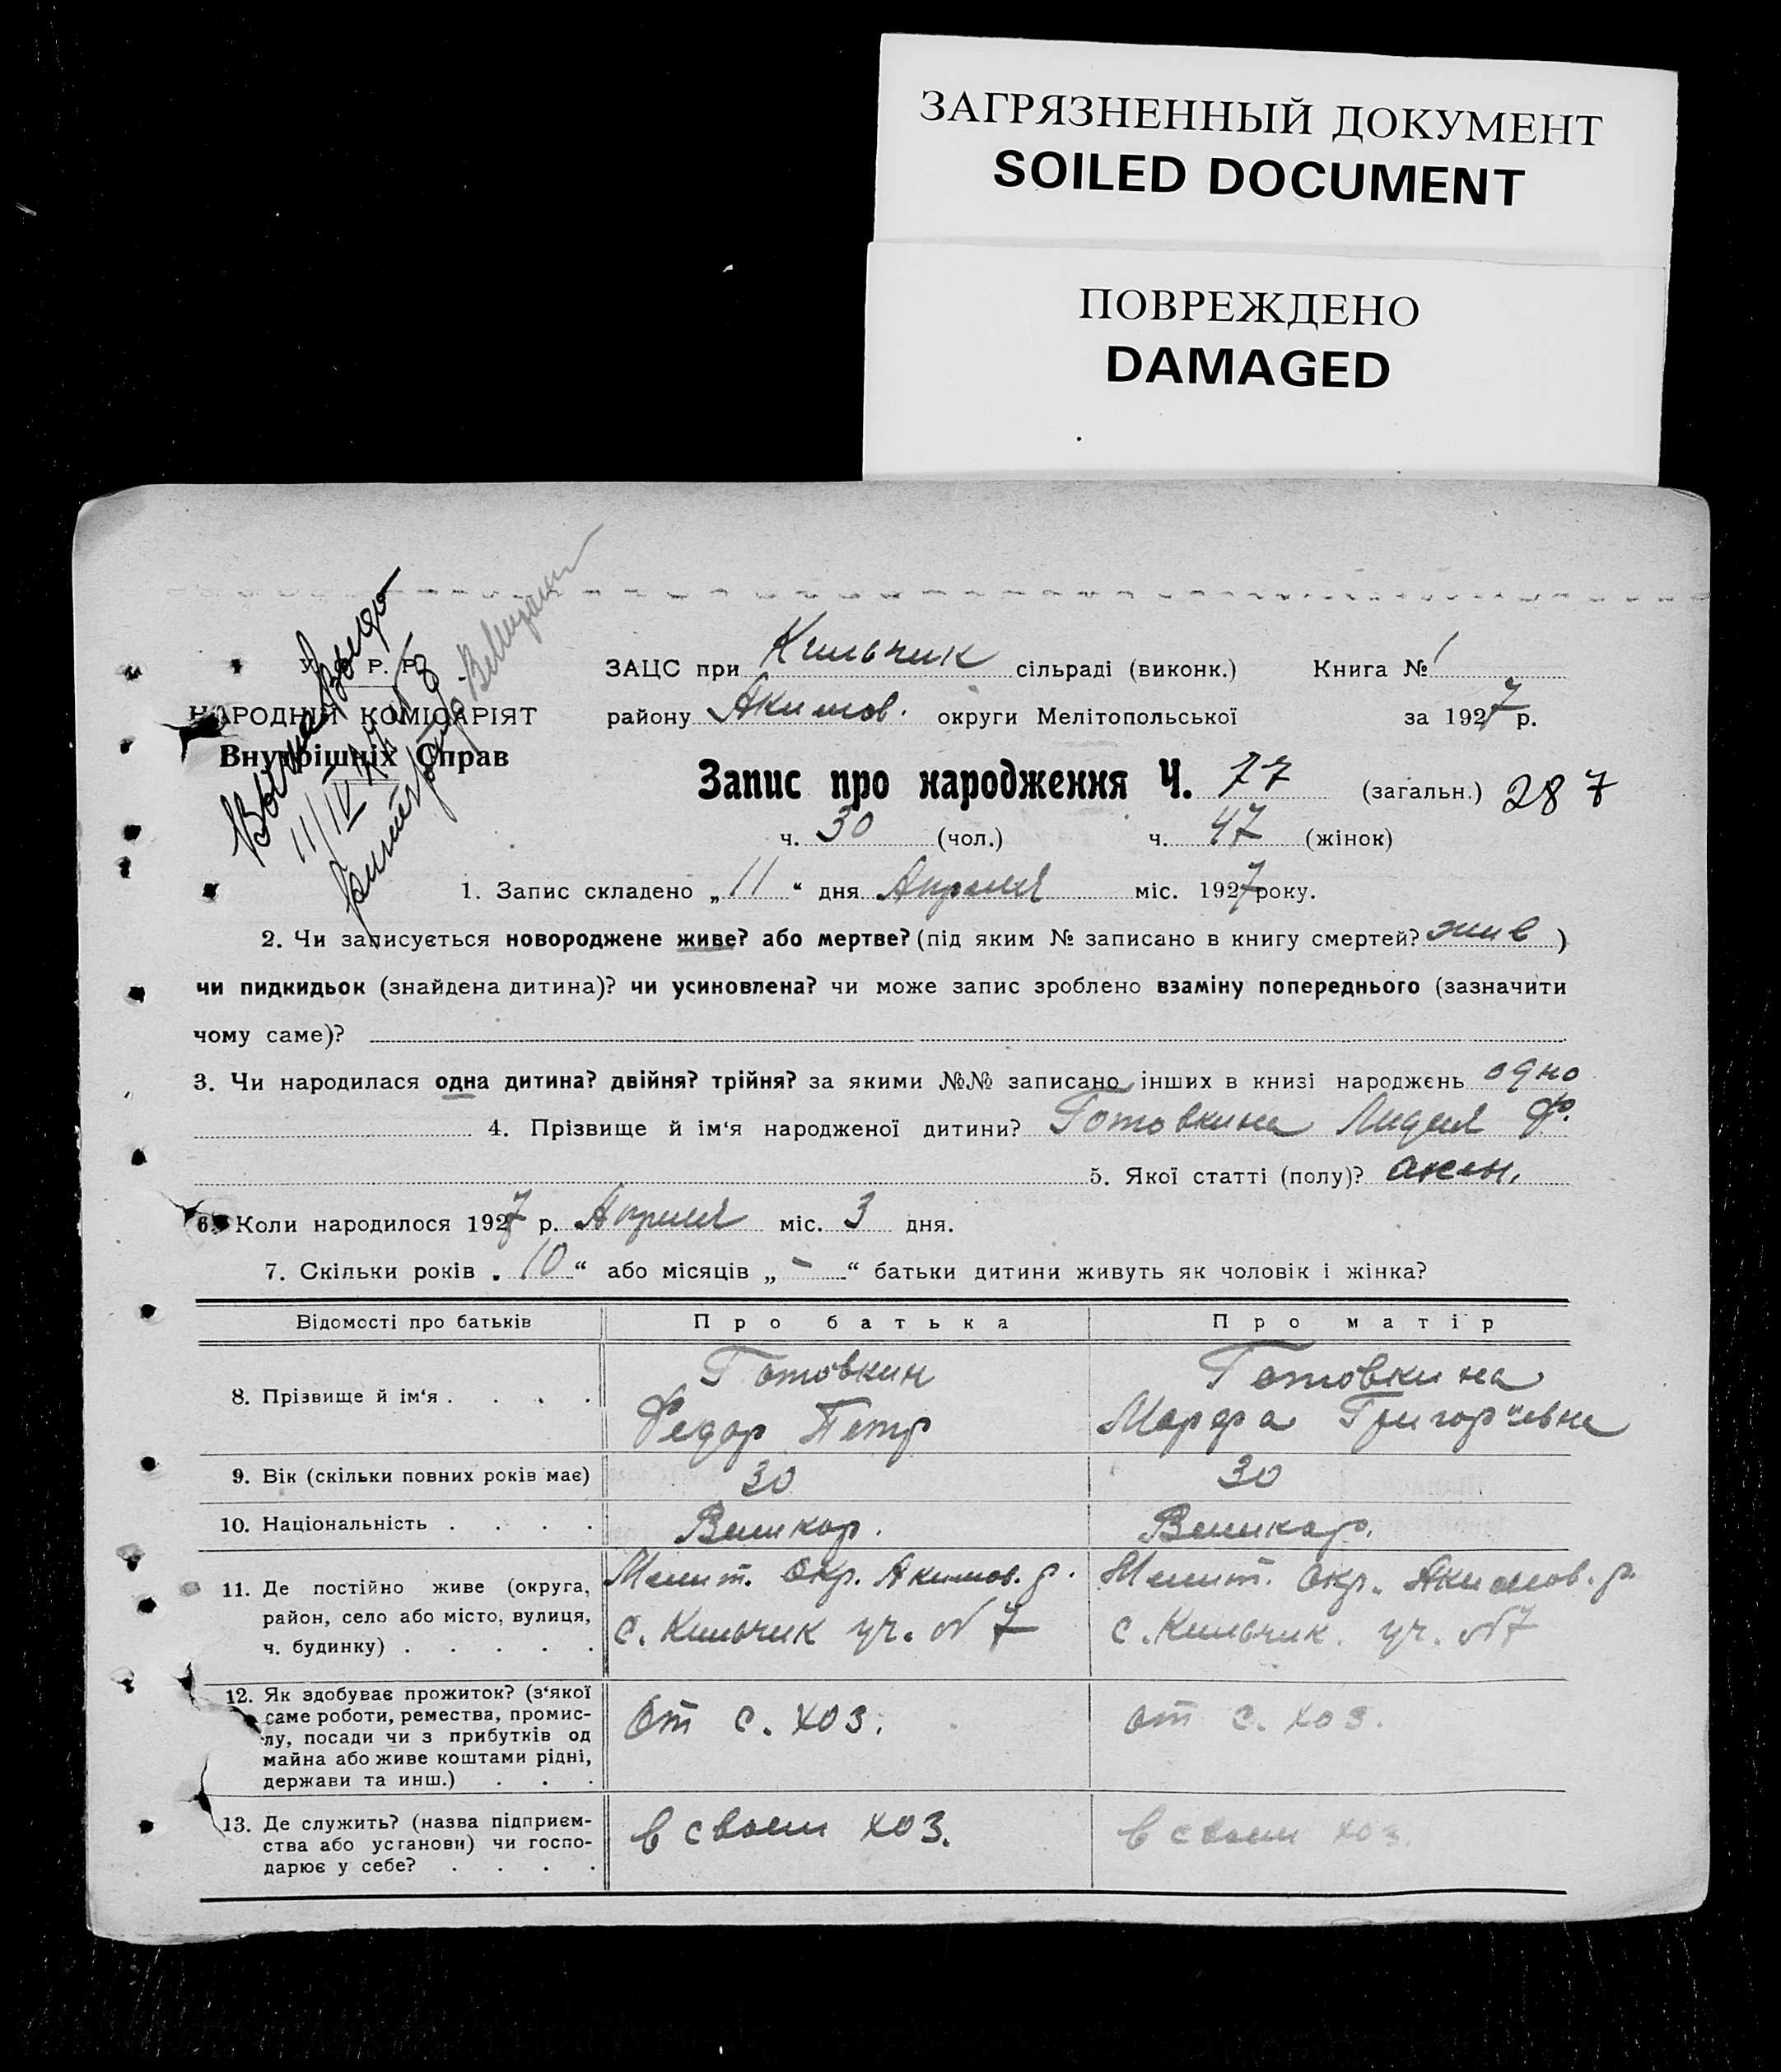 ЗАГРЯЗНЕННЫЙ ДОКУМЕНТ
SOILED DOCUMENT
ПОВРЕЖДЕНО
DAMAGED
У. Р. Р.
НАРОДНИЙ КОМІСАРІЯТ
Внутрішніх Справ
11/IV
ЗАЦС при Кильчик сільраді (виконк.) Книга № 1
району Акимов. округи Мелітопольської за 1927 р.
Запис про народження Ч. 77 (загальн.) 287
ч. 30 (чол.) ч. 47 (жінок)
1. Запис складено „11“ дня Апреля міс. 1927 року.
2. Чи записується новороджене живе? або мертве? (під яким № записано в книгу смертей? жив )
чи пидкидьок (знайдена дитина)? чи усиновлена? чи може запис зроблено взаміну попереднього (зазначити
чому саме)?
3. Чи народилася одна дитина? двійня? трійня? за якими №№ записано інших в книзі народжень одно
4. Прізвище й ім‘я народженої дитини? Готовкина Лидия Ф.
5. Якої статті (полу)? жен.
6. Коли народилося 1927 р. Апреля міс. 3 дня.
7. Скільки років „10“ або місяців „-“ батьки дитини живуть як чоловік і жінка?
Відомості про батьків Про батька Про матір
8. Прізвище й ім‘я . . . . Готовкин Готовкина
Федор Петр Марфа Григорьевна
9. Вік (скільки повних років має) 30 30
10. Національність . . . . Великор. Великор.
11. Де постійно живе (округа, Мелит. Окр. Акимов. р. Мелит. Окр. Акимов. р.
район, село або місто, вулиця, с. Кильчик уч. № 7 с. Кильчик. уч. № 7
ч. будинку) . . . . .
12. Як здобуває прожиток? (з‘якої
саме роботи, ремества, промис-
лу, посади чи з прибутків од От с. хоз. от с. хоз.
майна або живе коштами рідні,
держави та инш.) . . .
13. Де служить? (назва підприєм-
ства або установи) чи госпо- в своем хоз. в своем хоз.
дарює у себе? . . . .